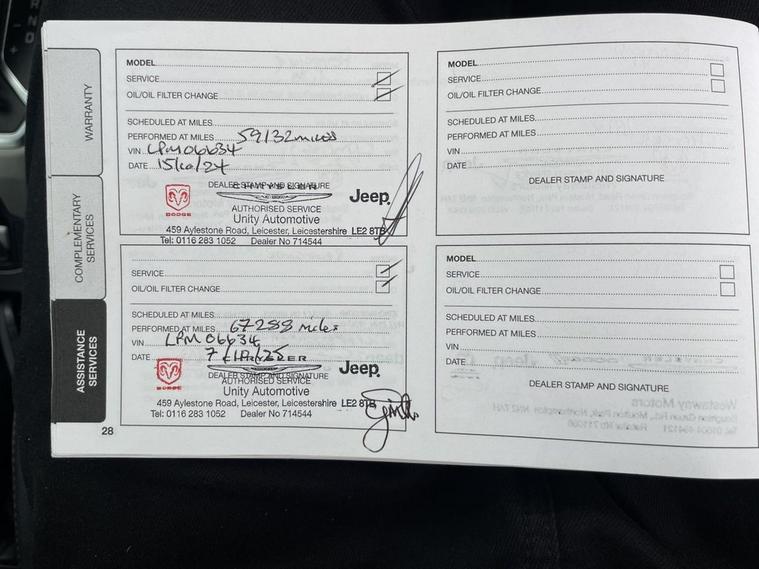 WARRANTY
COMPLEMENTARY SERVICES
ASSISTANCE SERVICES
MODEL
SERVICE
OIL/OIL FILTER CHANGE
SCHEDULED AT MILES
PERFORMED AT MILES 59132 miles
VIN LPM06634
DATE
DEALER STAMP AND SIGNATURE
DODGE
Jeep
AUTHORISED SERVICE
Unity Automotive
459 Aylestone Road, Leicester, Leicestershire LE2 8TB
Tel: 0116 283 1052 Dealer No 714544
SERVICE
OIL/OIL FILTER CHANGE
SCHEDULED AT MILES
PERFORMED AT MILES 67288 miles
VIN LPM06634
DATE
DEALER STAMP AND SIGNATURE
DODGE
Jeep
AUTHORISED SERVICE
Unity Automotive
459 Aylestone Road, Leicester, Leicestershire LE2 8TB
Tel: 0116 283 1052 Dealer No 714544
28
MODEL
SERVICE
OIL/OIL FILTER CHANGE
SCHEDULED AT MILES
PERFORMED AT MILES
VIN
DATE
DEALER STAMP AND SIGNATURE
MODEL
SERVICE
OIL/OIL FILTER CHANGE
SCHEDULED AT MILES
PERFORMED AT MILES
VIN
DATE
DEALER STAMP AND SIGNATURE